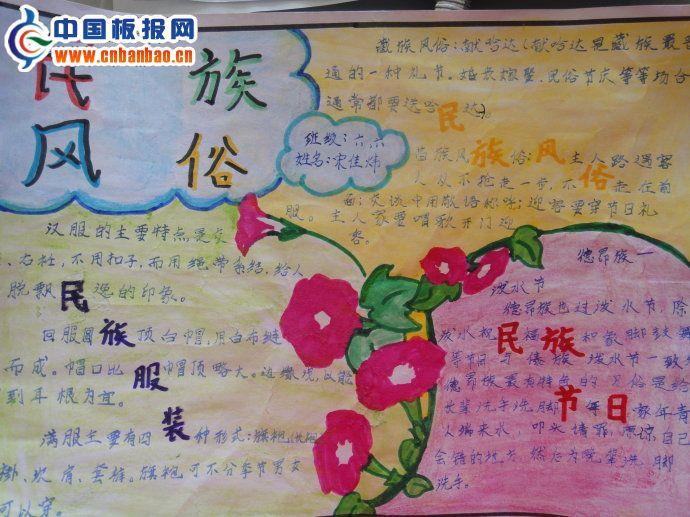 中国板报网
www.cnbanbao.cn
民族
风俗
班级:六、六
姓名:宋佳炜
藏族风俗:献哈达(献哈达是藏族最
通的一种礼节,婚丧嫁娶、民俗节庆等等场合
通常都要送哈达)。
民族风俗
苗族风俗:主人路遇客
人从不抢走一步,不走在前
面;交谈中用敬语称呼;迎客要穿节日礼
服。主人家要唱歌开门迎
客。
汉服的主要特点是交
、右衽,不用扣子,而用绳带系结,给人
脱飘逸的印象。
民族服装
回服 顶白帽,用白布缝
而成。帽口比帽顶略大。
到耳根为宜。
满服主要有四种形式:旗袍
褂、坎肩、套裤。旗袍可不分季节男女
可以穿。
德昂族—
泼水节
德昂族也过泼水节,除
泼水祝福和敲脚鼓舞
等节目与傣族泼水节一致
民族节日
德昂族最有特色的习俗是给
长辈洗手洗脚。 年青
人端来水,叩头请罪,原谅自己
会错的地方,然后为晚辈洗脚
洗手。